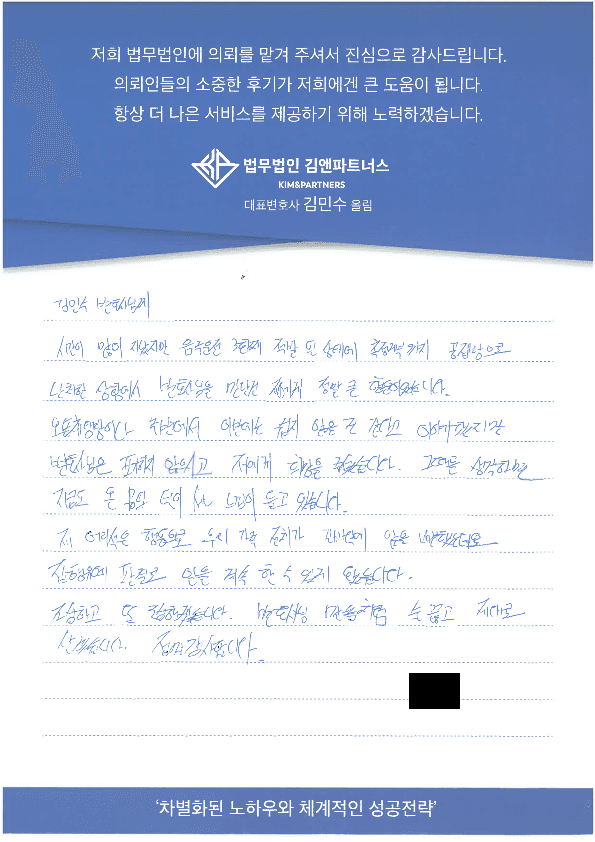 저희 법무법인에 의뢰를 맡겨 주셔서 진심으로 감사드립니다.
의뢰인들의 소중한 후기가 저희에겐 큰 도움이 됩니다.
항상 더 나은 서비스를 제공하기 위해 노력하겠습니다.
법무법인 김앤파트너스
KIM&PARTNERS
대표변호사 김민수 올림
김민수 변호사님께
시간이 많이 지났지만 음주운전 적발 된 상태에 측정거부까지
상황에서 변호사님을 만났던 정말 큰
주변에서 이번에는 쉽지 않은 것 같다고 이야기했지만
변호사님은 포기하지 않으시고 저에게 희망을 주셨습니다. 그때를 생각하면
지금도 온 몸의 털이 느낌이 들고 있습니다.
저 어리석은 행동으로 우리 가족 전체가
집행유예 판결로 일을 계속 할 수 있게 됐습니다.
조심하고 또 조심하겠습니다. 변호사님 말씀처럼 술 끊고 제대로
살겠습니다. 감사합니다.
'차별화된 노하우와 체계적인 성공전략'